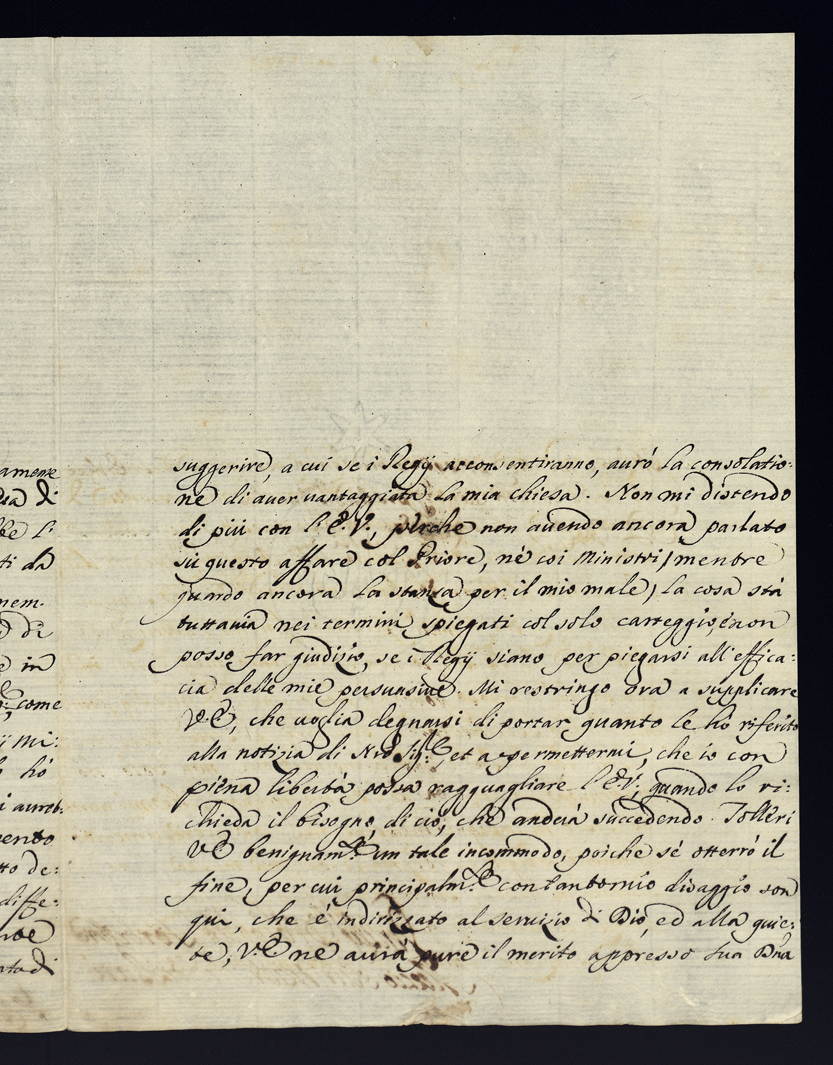 amente
di
l'
ti da
nem.
di
e in
come
Mi:
hò
i aureb:
mento
tto de:
diffe:
di
suggerire, a cui se i Regÿ acconsentiranno, aurò la consolatio:
ne di auer vantaggiata la mia chiesa. Non mi distendo
di più con l'E.V., perche non auendo ancora parlato
sù questo affare col Priore, nè coi Ministri / mentre
guardo ancora la stanza per il mio male / la cosa stà
tuttauia nei termini spiegati col solo carteggio, è non
posso far giudizio, se i Regÿ siano per piegarsi all'effica:
cia delle mie persuasiue. Mi restringo ora a supplicare
V.E., che voglia degnarsi di portar quanto le hò riferito
alla notizia di Nro Sig.re, et a permettermi, che io con
piena libertà possa ragguagliare l'E.V., quando lo ri:
chieda il bisogno di ciò, che anderà succedendo. Tolleri
VE benignam.te un tale incommodo, poiche sè otterrò il
fine, per cui principalm.te con tanto mio disaggio son
qui, che è indirizzato al seruizio di Dio, ed alla quie:
te, V.E. ne aurà pure il merito appresso Sua Dna